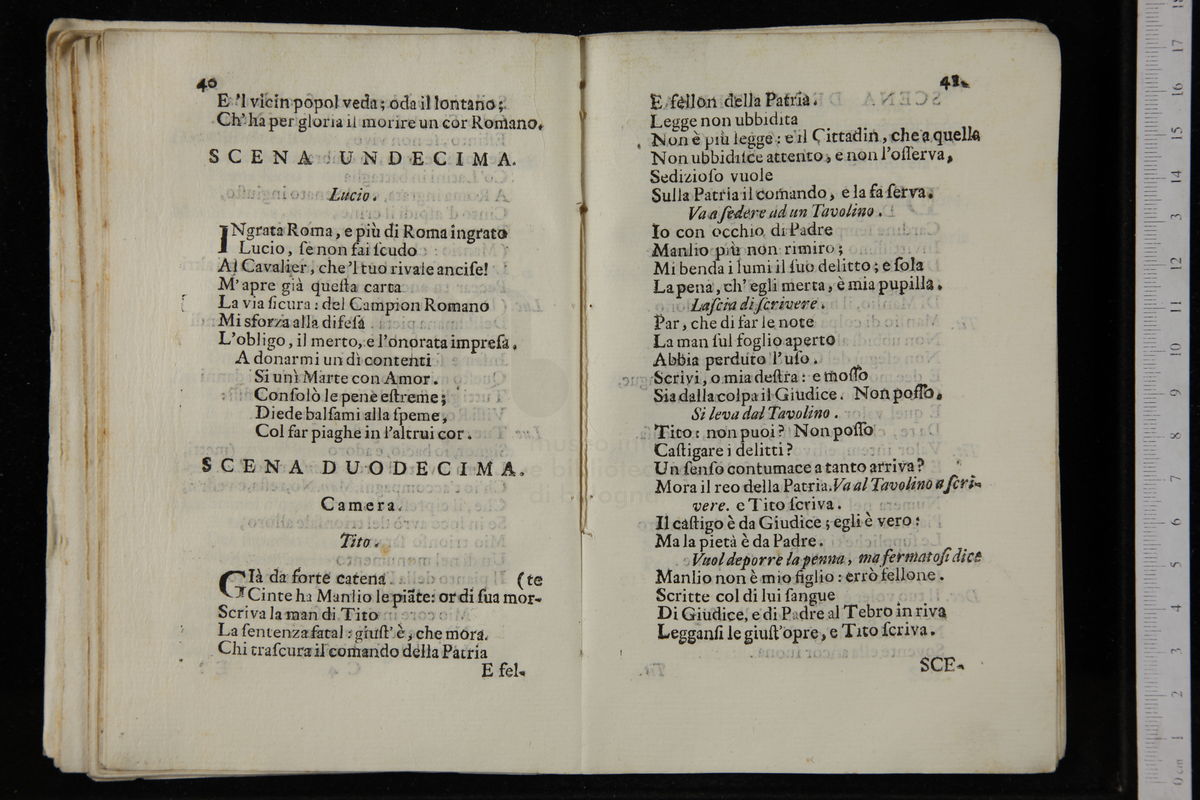 40
E 'l vicin popol veda; oda il lontano;
Ch' ha per gloria il morire un cor Romano.
SCENA UNDECIMA.
Lucio.
INgrata Roma, e più di Roma ingrato
Lucio, ſe non fai ſcudo
Al Cavalier, che 'l tuo rivale anciſe!
M' apre già queſta carta
La via ſicura: del Campion Romano
Mi sforza alla difeſa
L'obligo, il merto, e l'onorata impreſa.
A donarmi un dì contenti
Si unì Marte con Amor.
Conſolò le pene eſtreme;
Diede balſami alla ſpeme,
Col far piaghe in l'altrui cor.
SCENA DUODECIMA.
Camera.
Tito.
GIà da forte catena (te
Cinte ha Manlio le piãte: or di ſua mor-
Scriva la man di Tito
La ſentenza fatal: giuſt' è, che mora.
Chi traſcura il comando della Patria
E fel-
41.
E fellon della Patria.
Legge non ubbidita
Non è più legge: e il Cittadin, che a quella
Non ubbidiſce attento, e non l'oſſerva,
Sedizioſo vuole
Sulla Patria il comando, e la fa ſerva.
Va a ſedere ad un Tavolino.
Io con occhio di Padre
Manlio più non rimiro;
Mi benda i lumi il ſuo delitto; e ſola
La pena, ch' egli merta, è mia pupilla.
Laſcia di ſcrivere.
Par, che di far le note
La man ſul foglio aperto
Abbia perduto l'uſo.
Scrivi, o mia deſtra: e moſſo
Sia dalla colpa il Giudice. Non poſſo.
Si leva dal Tavolino.
Tito: non puoi? Non poſſo
Caſtigare i delitti?
Un ſenſo contumace a tanto arriva?
Mora il reo della Patria. Va al Tavolino a ſcri-
vere. e Tito ſcriva.
Il caſtigo è da Giudice; egli è vero:
Ma la pietà è da Padre.
Vuol deporre la penna, ma fermatoſi dice
Manlio non è mio figlio: errò fellone.
Scritte col di lui ſangue
Di Giudice, e di Padre al Tebro in riva
Legganſi le giuſt'opre, e Tito ſcriva.
SCE-